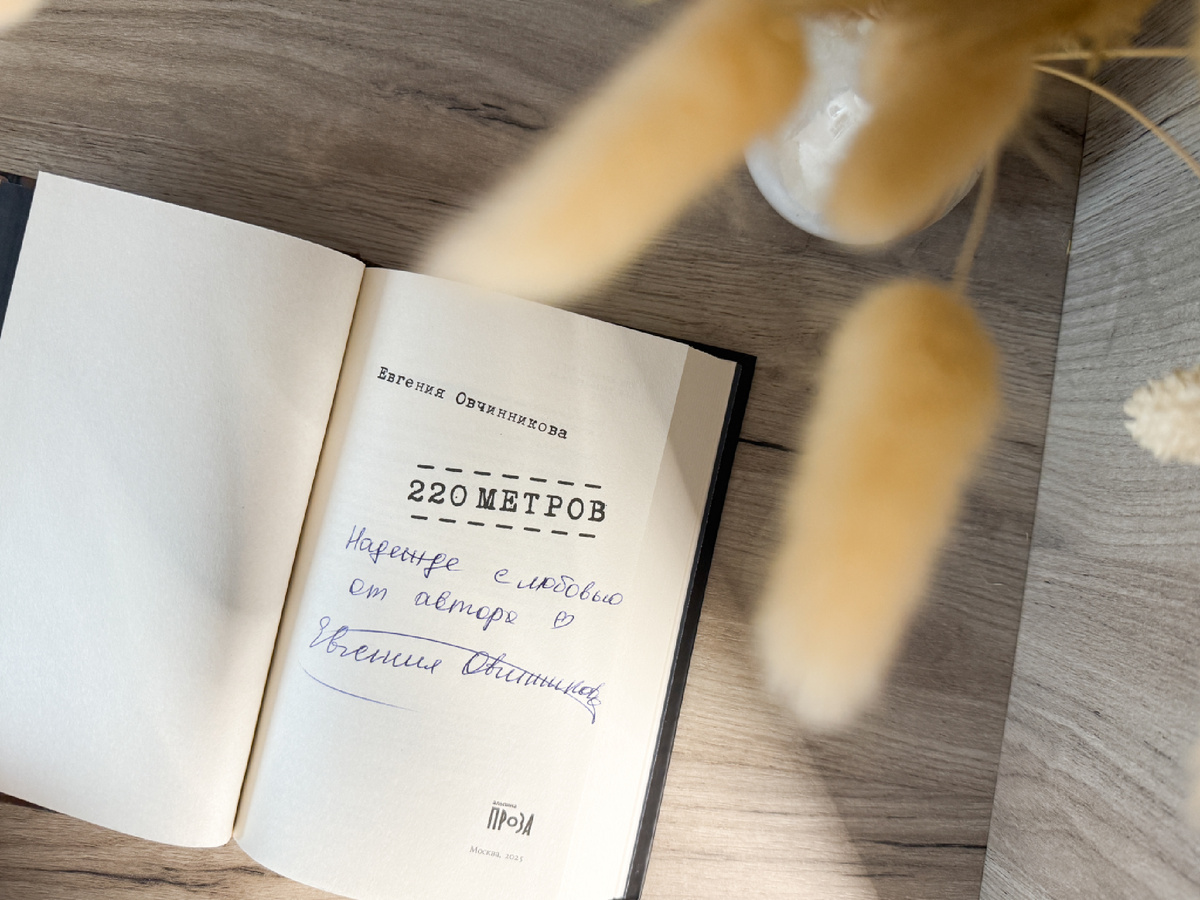 Евгения Овчинникова
220 МЕТРОВ
Надежде с любовью
от автора ♡
Евгения Овчинникова
альпина
ПРОЗА
Москва, 2023